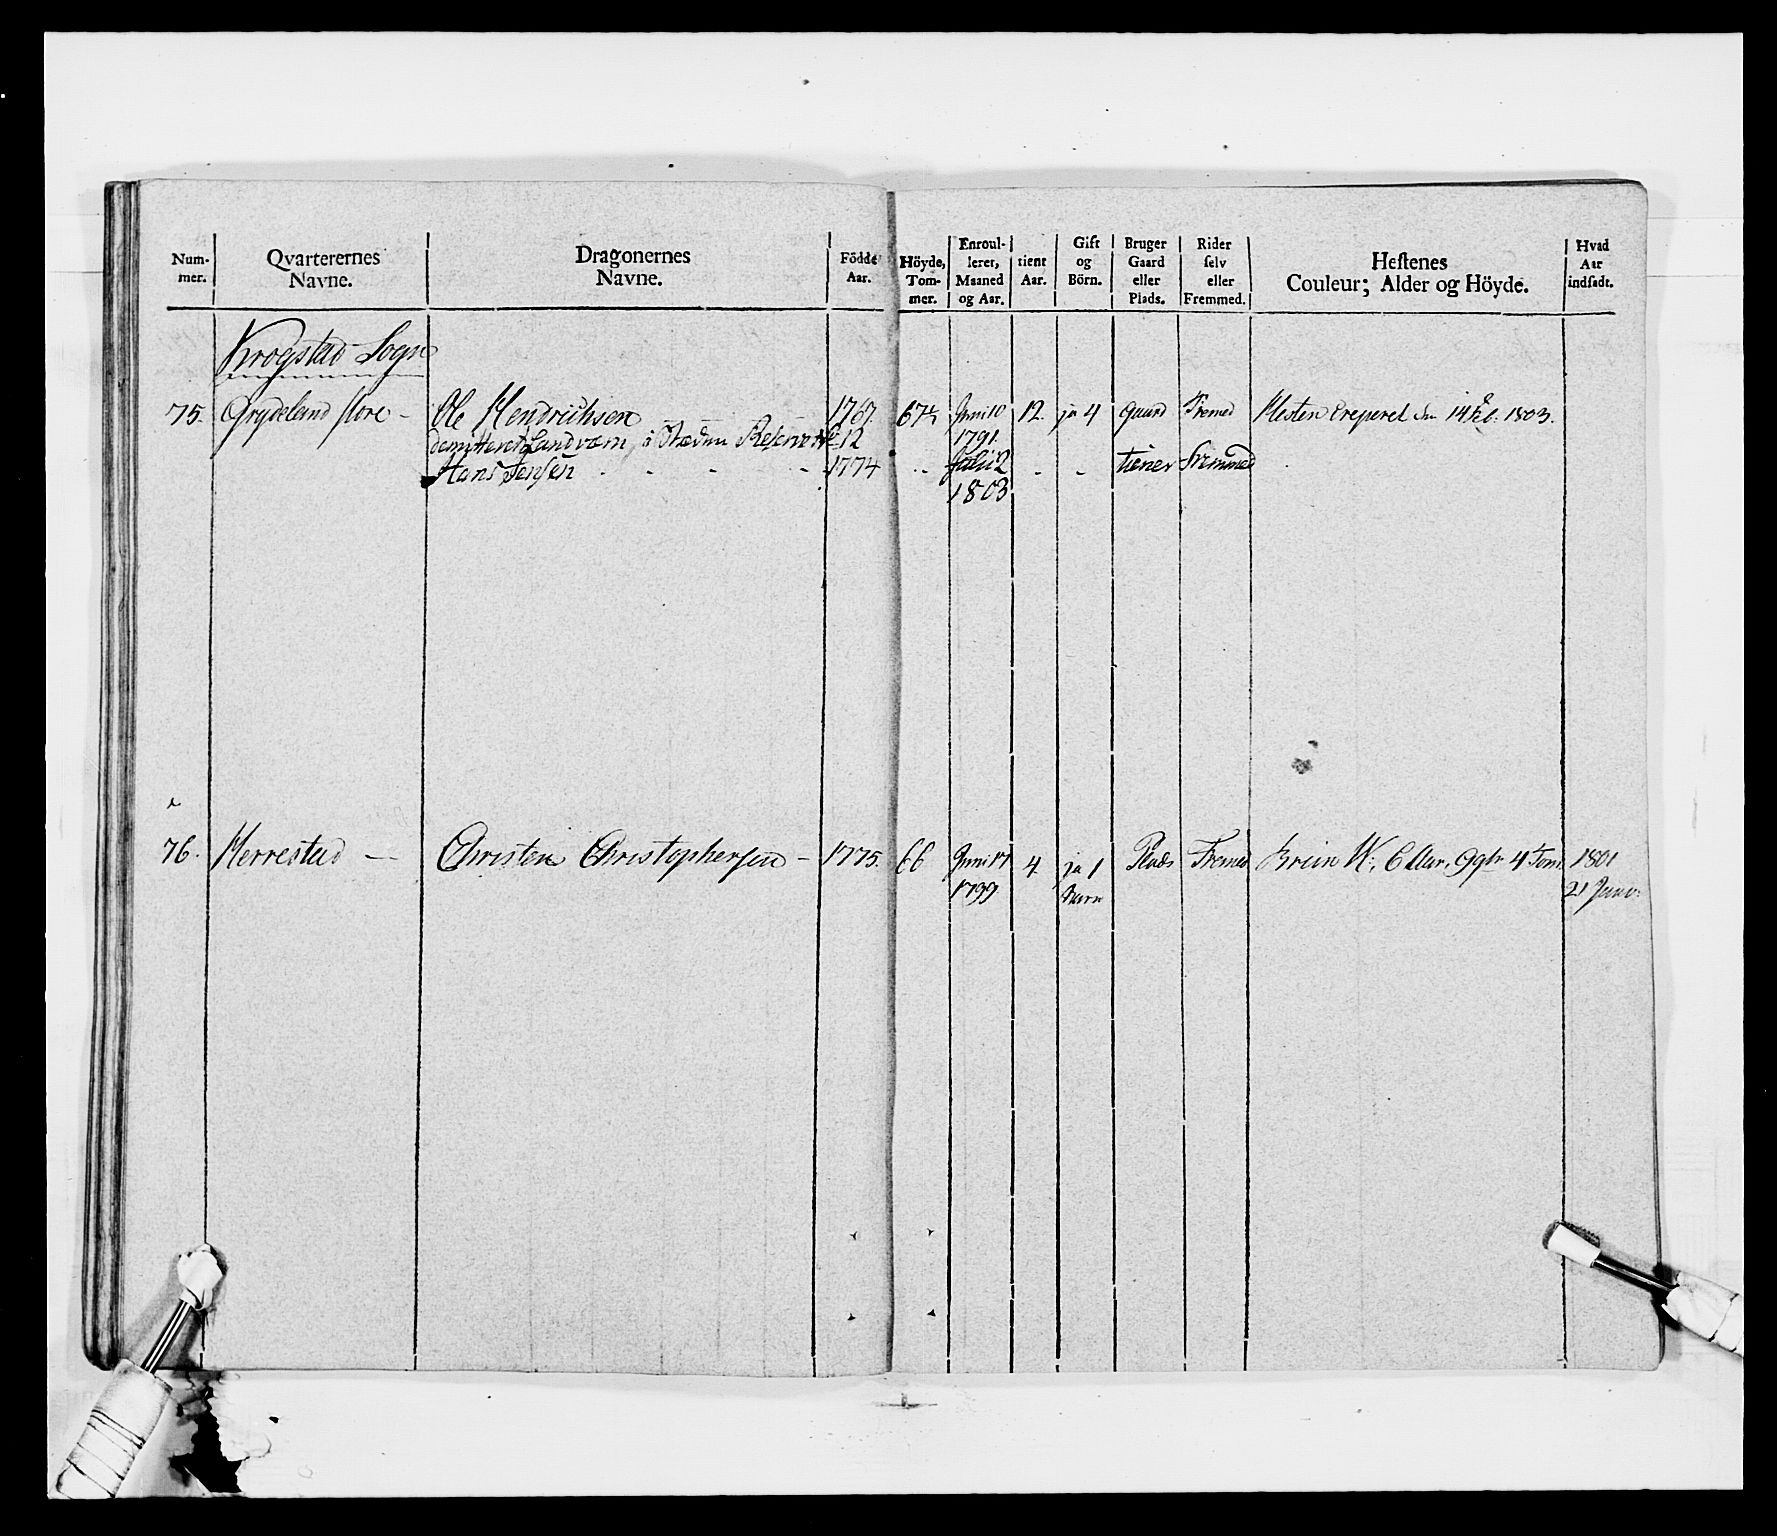 Num-
mer.
Qvarterernes
Navne.
Dragonernes
Navne.
Födde
Aar.
Höyde,
Tom-
mer.
Enroul-
leret,
Maaned
og Aar.
tient
Aar.
Gift
og
Börn.
Bruger
Gaard
eller
Plads.
Rider
selv
eller
Fremmed.
Hestenes
Couleur; Alder og Höyde.
Hvad
Aar
indsadt.
Krogstad Sogn
75. Grydeland store - Ole Hendrichsen 1767. 67½ Juni 10 12. ja 4 Gaard Fremed Hesten Creperet den 14 1803.
1791.
demitteret Landværn, i Stæden Reserve 12
Hans Jensen - - - - 1774 - - Julii 2 - - tiener Fremmed
1803
76. Herrestad - Christen Christophersen - 1775. 66 Juni 17 4 ja 1 Plads Fremed Bruun W. 6 Aar, 9 qtr 4 Tom. 1801
1799 Barn 21 Janv: